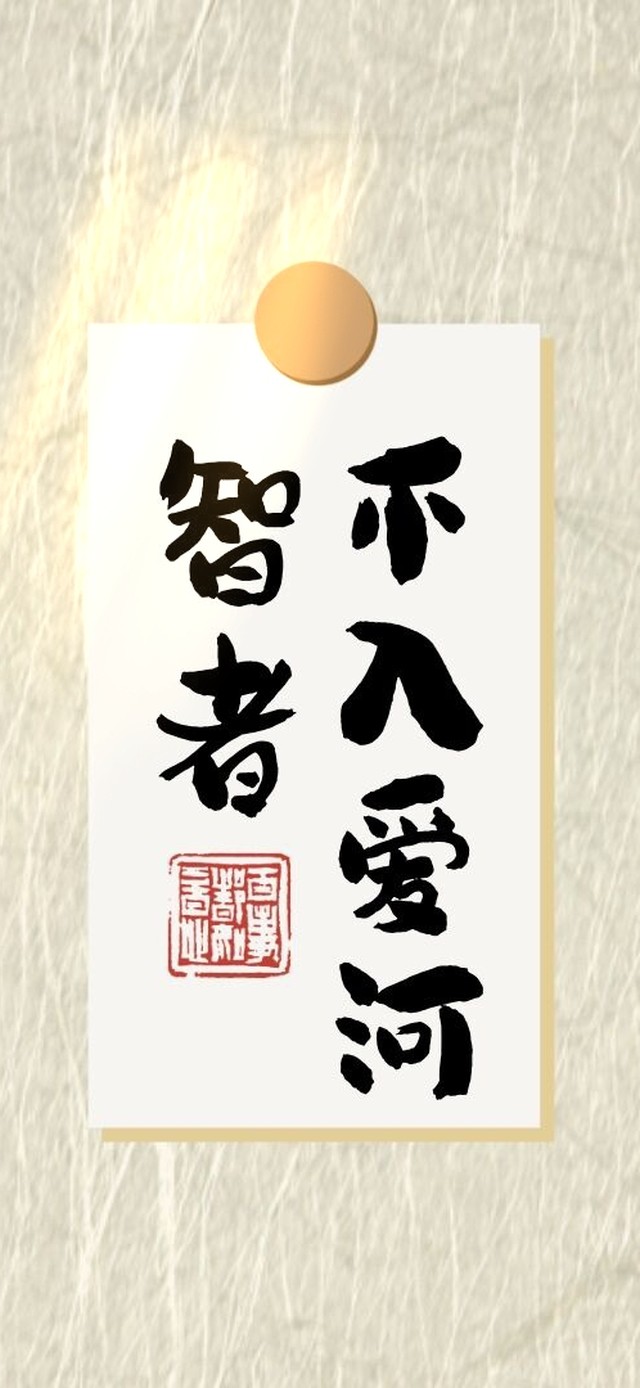 智者
不入爱河